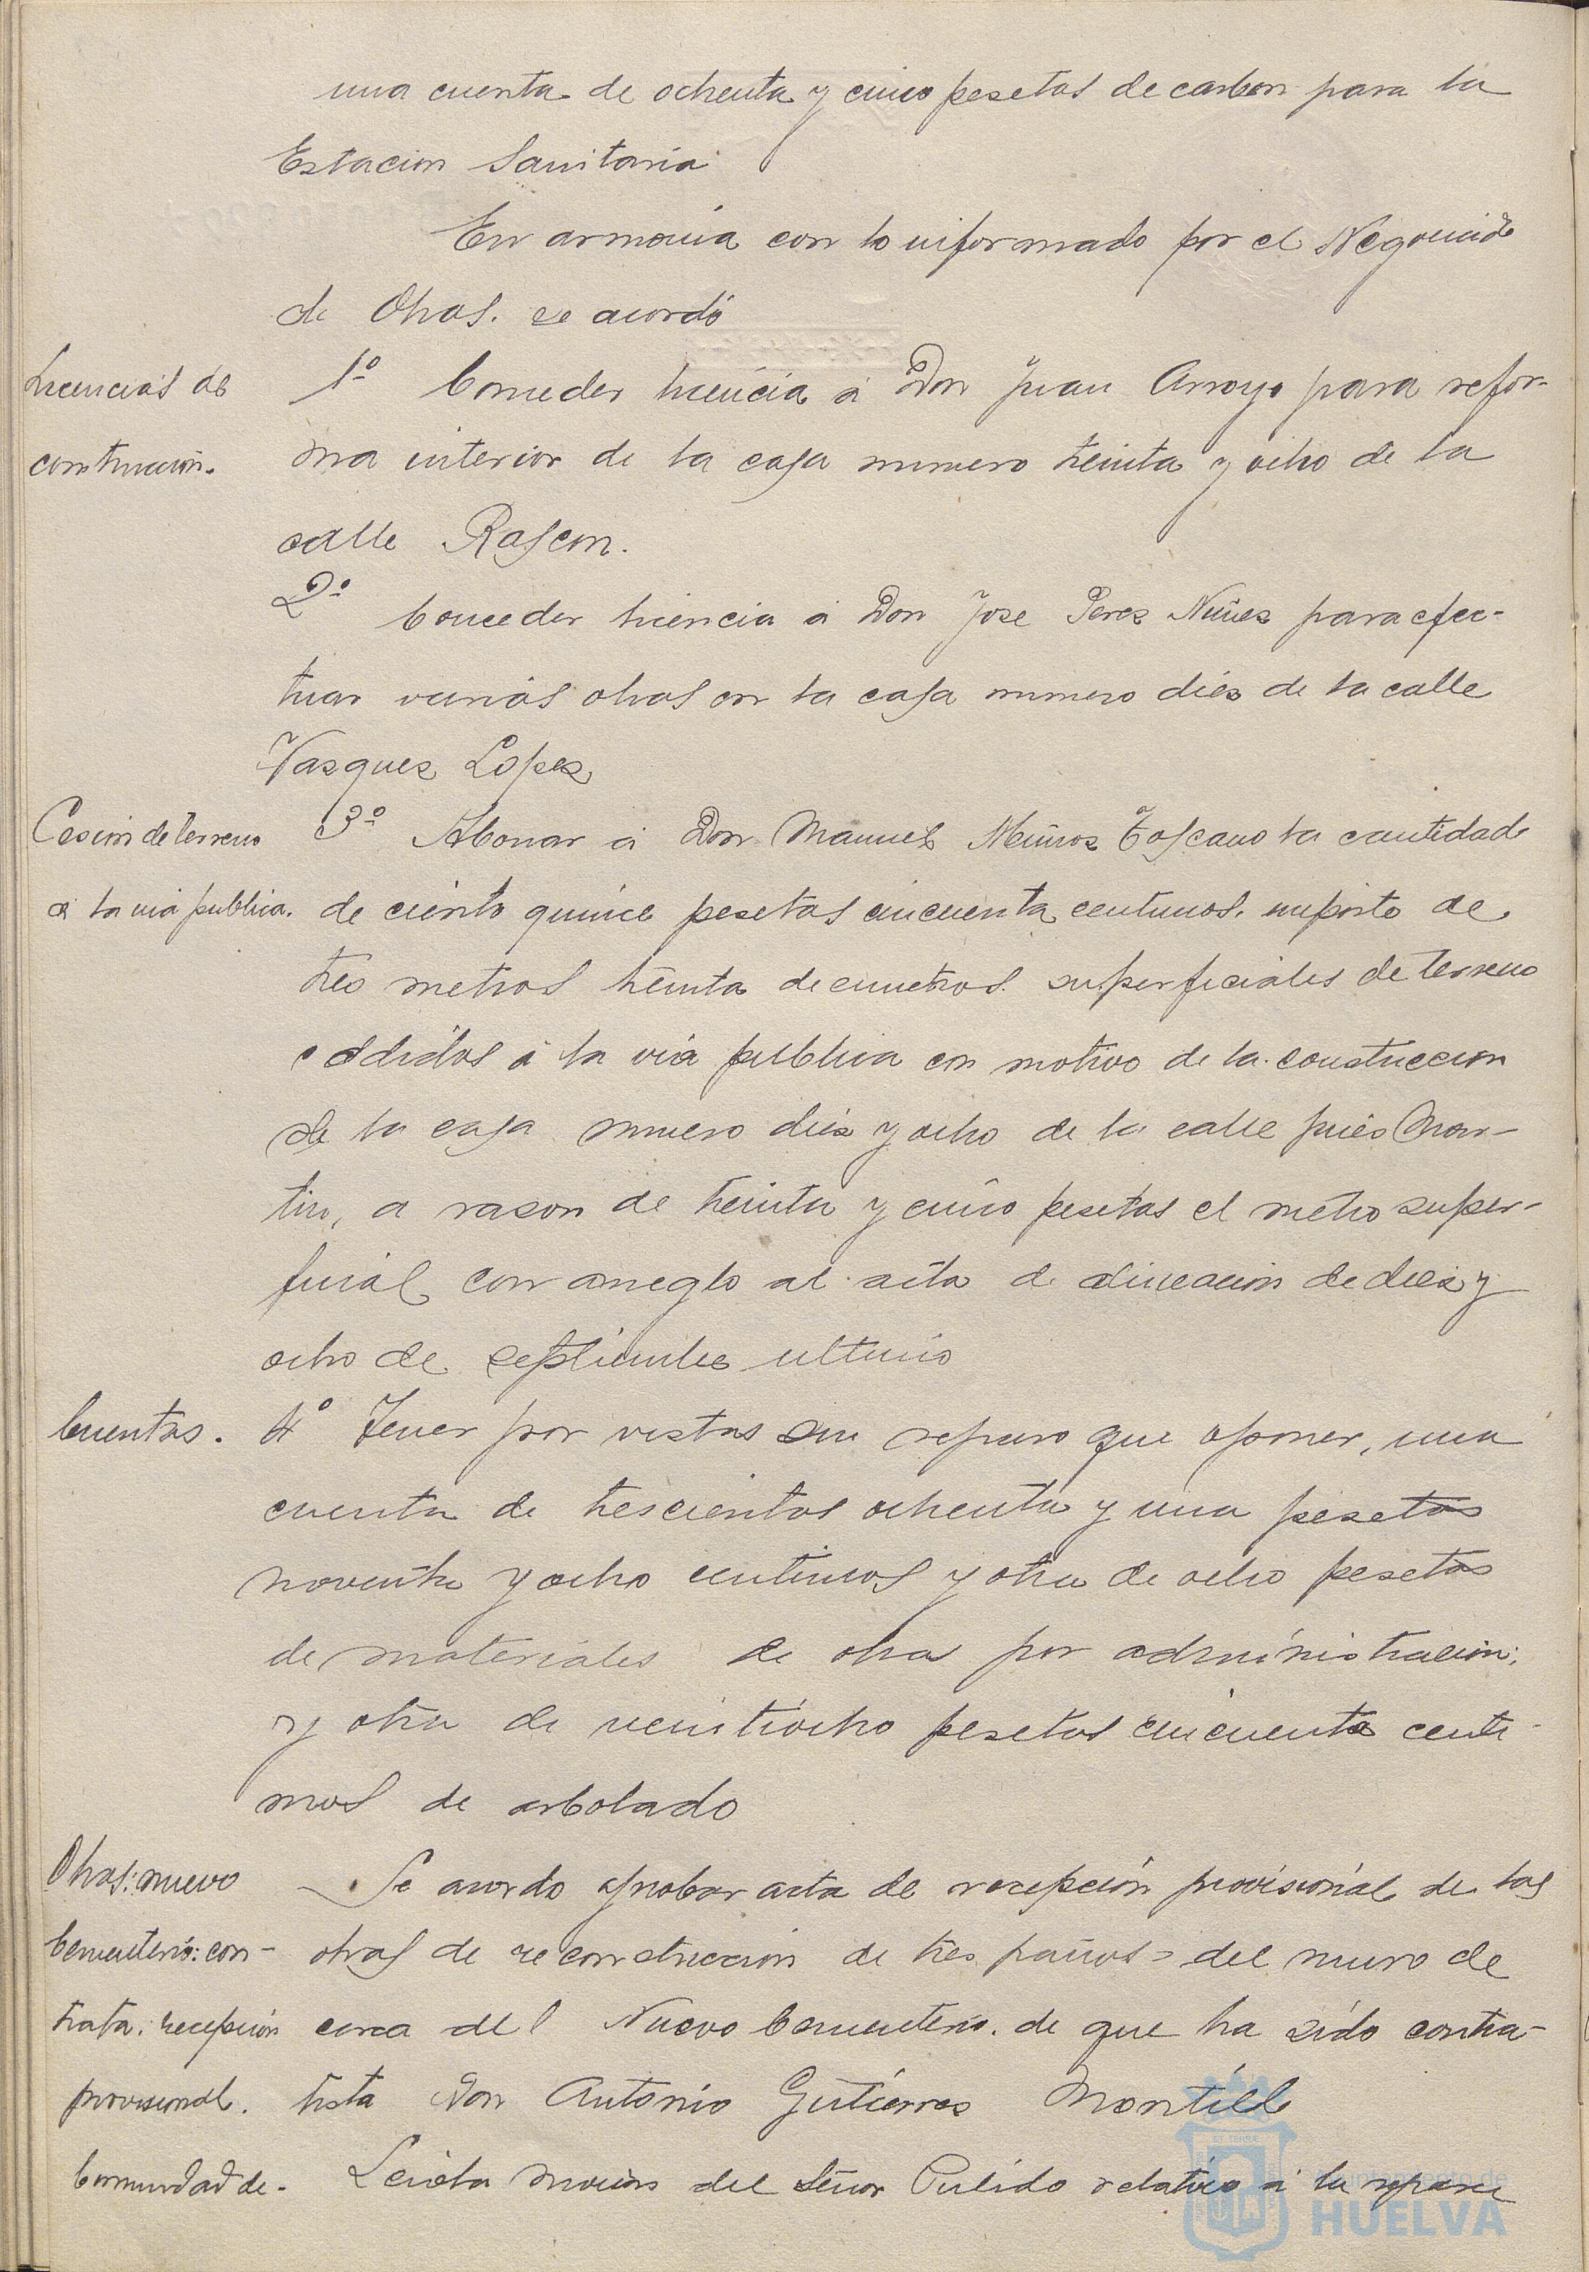 una cuenta de ochenta y cinco pesetas de carbon para la
Estacion Sanitaria
En armonia con lo informado por el Negociado
de Obras. se acordó
Licencias de
construcción.
1º Conceder licencia á Don Juan Arroyo para refor-
ma interior de la casa numero treinta y ocho de la
calle Rascon.
2º Conceder licencia á Don Jose Peres Nuñes para efec-
tuar varias obras en la casa numero dies de la calle
Vasques Lopes
Cesion de terreno
á la via publica.
3º Abonar á Don Manuel Muños Toscano la cantidad
de ciento quince pesetas cincuenta centimos. importe de
tres metros treinta decimetros superficiales de terreno
cedidos á la via publica con motivo de la construccion
de la casa numero dies y ocho de la calle Ginés Mar-
tin, a rason de treinta y cinco pesetas el metro super-
ficial con arreglo al acta de alineacion de dies y
ocho de septiembre ultimo
Cuentas.
4º Tener por vistas sin reparo que oponer, una
cuenta de trescientos ochenta y una pesetas
noventa y ocho centimos y otra de ocho pesetas
de materiales de obra por administracion;
y otra de veintiocho pesetas cincuenta centi-
mos de arbolado
Obras: nuevo
Cementerio: con-
trata: recepcion
provisional.
Se acordo aprobar acta de recepción provisional de las
obras de reconstruccion de tres paños del muro de
cerca del Nuevo Cementerio. de que ha sido contra-
tista Don Antonio Gutierres Montiel
Comunidad de-
Leida mocion del Señor Pulido relativa á la repara
Ayuntamiento de
HUELVA